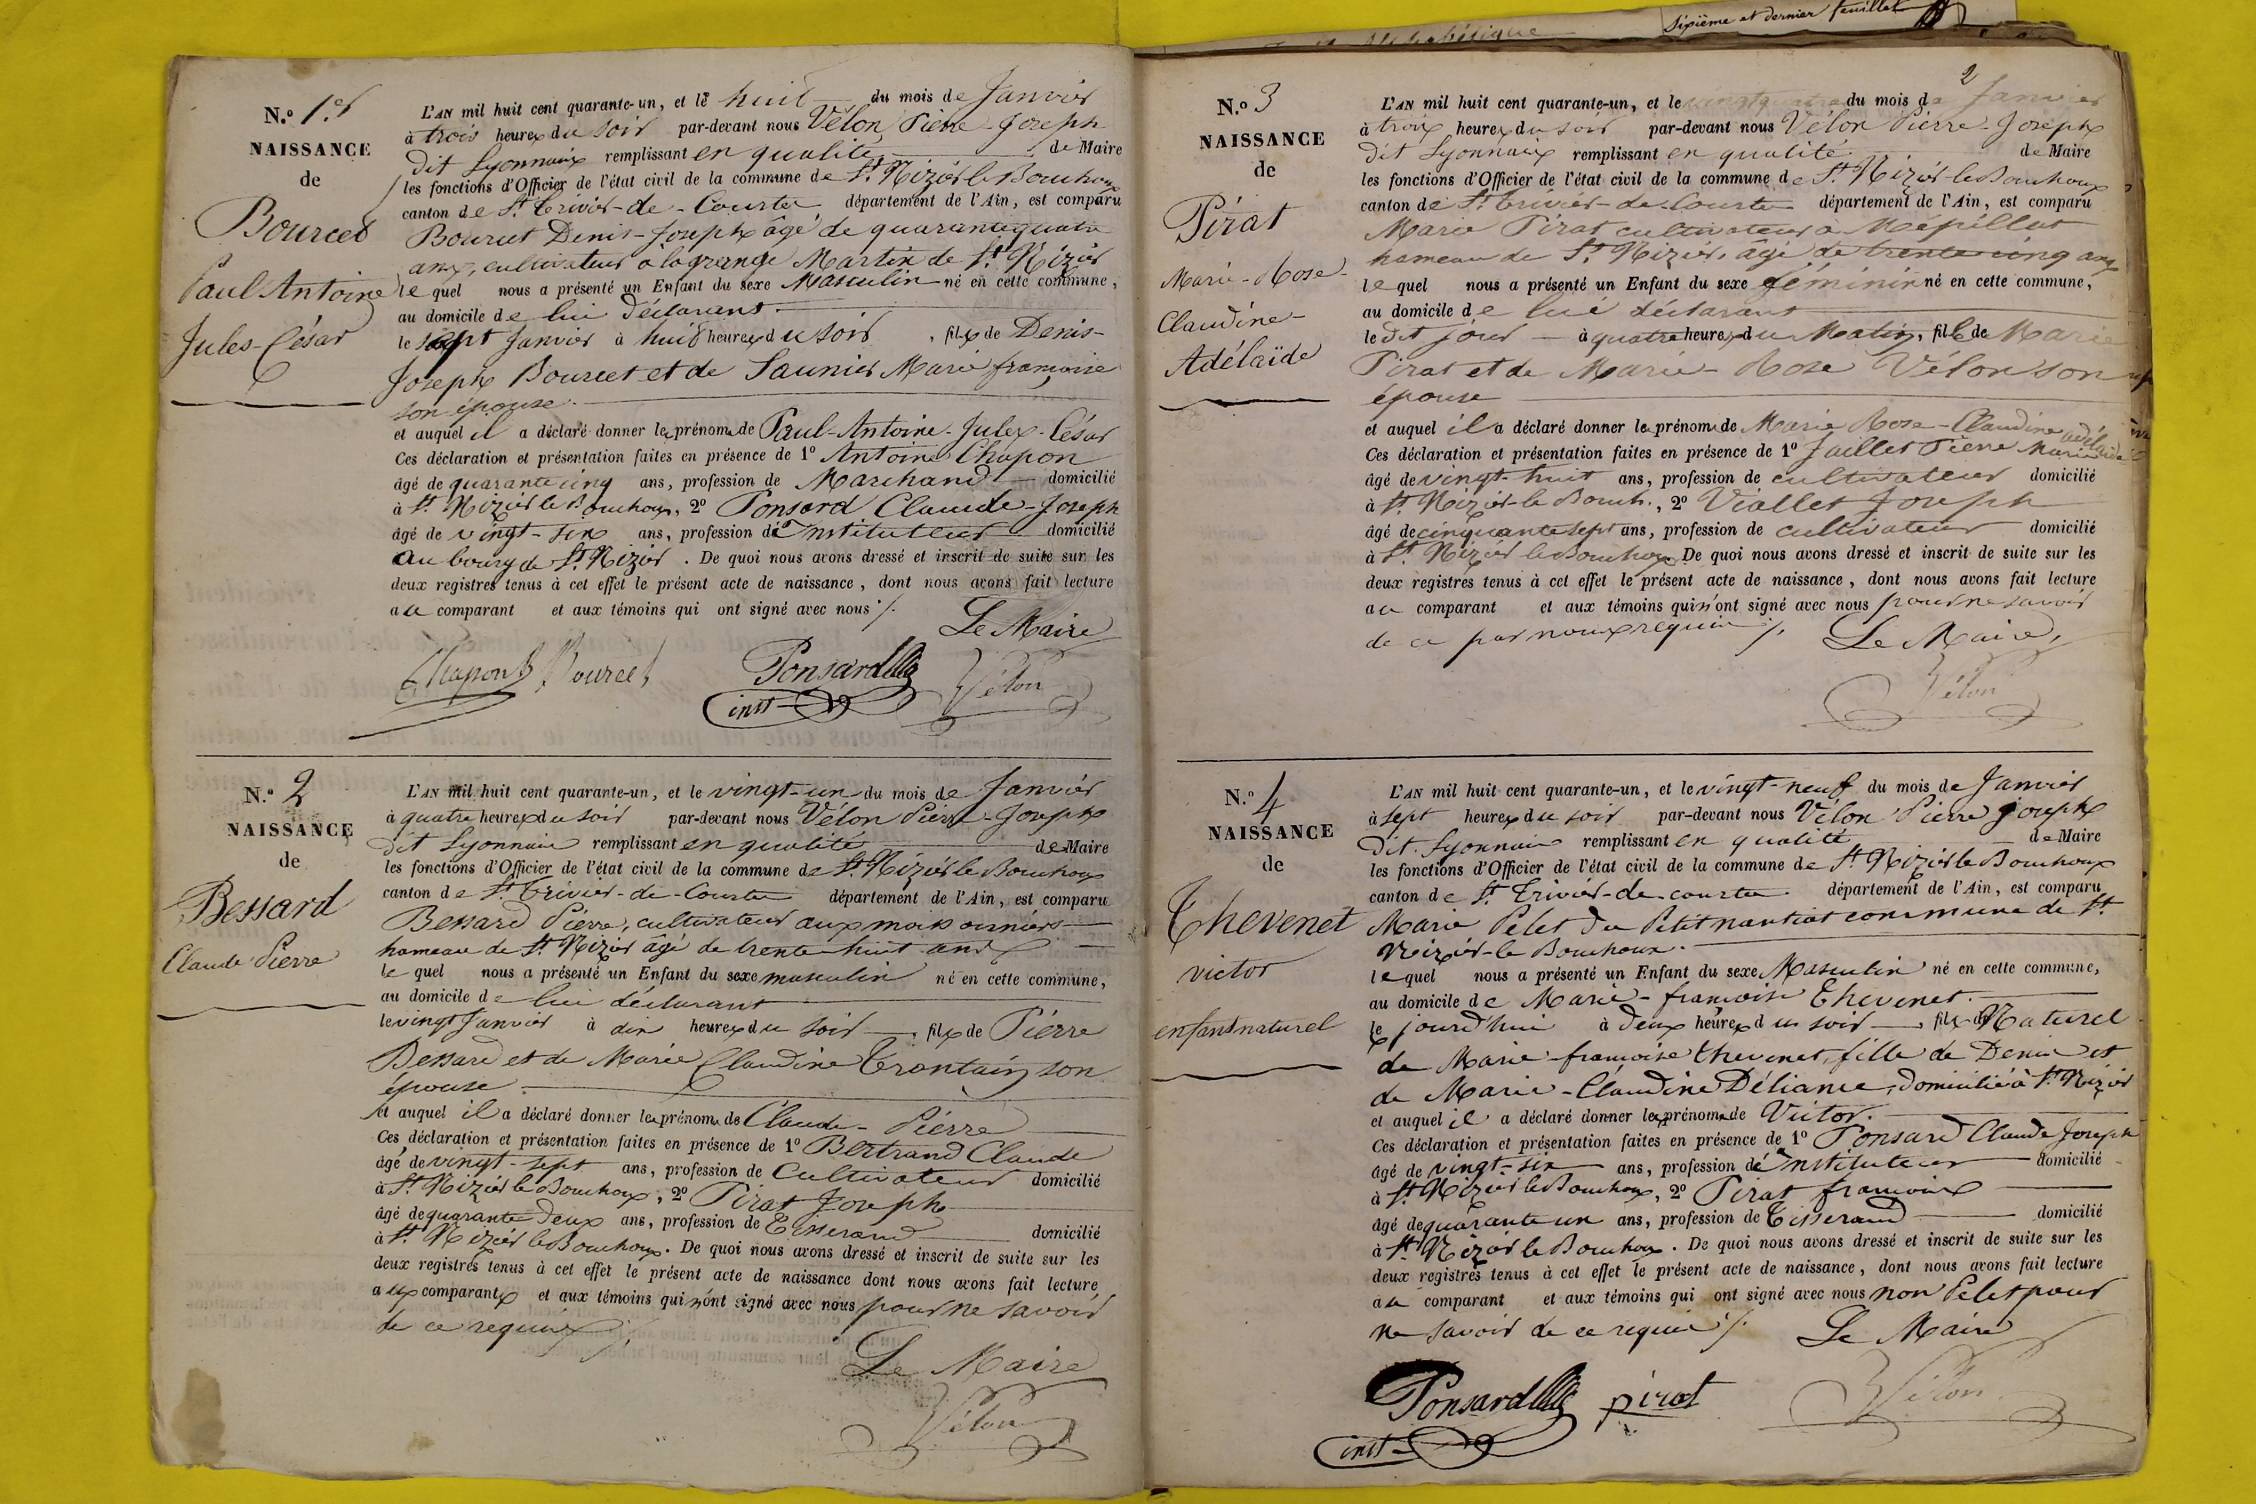 Sixième et dernier feuillet
Alphabétique
N.º 1.er
NAISSANCE
de
Bourcet
Paul Antoine
Jules-César
L'AN mil huit cent quarante-un, et le huit du mois de Janvier
à trois heures du soir par-devant nous Vélon Pierre-Joseph
dit Lyonnaix remplissant en qualité de Maire
les fonctions d'Officier de l'état civil de la commune de St. Nizier le Bouchoux
canton de St. Trivier-de-Courtes département de l'Ain, est comparu
Bourcet Denis-Joseph âgé de quarante quatre
ans, cultivateur à la grange Martin de St. Nizier
lequel nous a présenté un Enfant du sexe Masculin né en cette commune,
au domicile de lui déclarant
le sept Janvier à huit heures du soir, fils de Denis-
Joseph Bourcet et de Saunier Marie françoise
son épouse.
et auquel il a déclaré donner les prénoms de Paul-Antoine-Jules-César
Ces déclaration et présentation faites en présence de 1º Antoine Chapon
âgé de quarante cinq ans, profession de Marchand domicilié
à St. Nizier le Bouchoux, 2º Ponsard Claude-Joseph
âgé de vingt-six ans, profession d'Instituteur domicilié
au bourg de St. Nizier. De quoi nous avons dressé et inscrit de suite sur les
deux registres tenus à cet effet le présent acte de naissance, dont nous avons fait lecture
au comparant et aux témoins qui ont signé avec nous ./.
Le Maire
Chapon Bourcet Ponsard Vélon
inst
N.º 2
NAISSANCE
de
Bessard
Claude Pierre
L'AN mil huit cent quarante-un, et le vingt-un du mois de Janvier
à quatre heures du soir par-devant nous Vélon Pierre-Joseph
dit Lyonnais remplissant en qualité de Maire
les fonctions d'Officier de l'état civil de la commune de St. Nizier le Bouchoux
canton de St. Trivier-de-Courtes département de l'Ain, est comparu
Bessard Pierre, cultivateur aux
hameau de St. Nizier âgé de trente huit ans
le quel nous a présenté un Enfant du sexe masculin né en cette commune,
au domicile de lui déclarant
le vingt Janvier à dix heures du soir, fils de Pierre
Bessard et de Marie Claudine Trontain son
épouse
et auquel il a déclaré donner les prénoms de Claude-Pierre
Ces déclaration et présentation faites en présence de 1º Bertrand Claude
âgé de vingt-sept ans, profession de Cultivateur domicilié
à St. Nizier le Bouchoux, 2º Pirat Joseph
âgé de quarante deux ans, profession de Tisserand domicilié
à St. Nizier le Bouchoux. De quoi nous avons dressé et inscrit de suite sur les
deux registres tenus à cet effet le présent acte de naissance dont nous avons fait lecture
aux comparants et aux témoins qui n'ont signé avec nous pour ne savoir
de ce requis ./.
Le Maire
Vélon
2
N.º 3
NAISSANCE
de
Pirat
Marie-Rose-
Claudine-
Adélaïde
L'AN mil huit cent quarante-un, et le vingt quatre du mois de Janvier
à trois heures du soir par-devant nous Vélon Pierre-Joseph
dit Lyonnaix remplissant en qualité de Maire
les fonctions d'Officier de l'état civil de la commune de St. Nizier le Bouchoux
canton de St. Trivier-de-Courtes département de l'Ain, est comparu
Marie Pirat cultivateur à Mépillat
hameau de St. Nizier, âgé de trente cinq ans
lequel nous a présenté un Enfant du sexe féminin né en cette commune,
au domicile de lui déclarant
le dit jour à quatre heures du Matin, fille de Marie
Pirat et de Marie-Rose Vélon son
épouse
et auquel il a déclaré donner les prénoms de Marie Rose-Claudine adélaïde
Ces déclaration et présentation faites en présence de 1º Jaillet Pierre Marie
âgé de vingt-huit ans, profession de cultivateur domicilié
à St. Nizier-le Bouch., 2º Viallet Joseph
âgé de cinquante sept ans, profession de cultivateur domicilié
à St. Nizier le Bouchoux. De quoi nous avons dressé et inscrit de suite sur les
deux registres tenus à cet effet le présent acte de naissance, dont nous avons fait lecture
au comparant et aux témoins qui n'ont signé avec nous pour ne savoir
de ce par nous requis ./. Le Maire,
Vélon
N.º 4
NAISSANCE
de
Thevenet
victor
enfant naturel
L'AN mil huit cent quarante-un, et le vingt-neuf du mois de Janvier
à sept heures du soir par-devant nous Vélon Pierre Joseph
dit Lyonnais remplissant en qualité de Maire
les fonctions d'Officier de l'état civil de la commune de St. Nizier le Bouchoux
canton de St. Trivier-de-courtes département de l'Ain, est comparu
Marie Pelet du Petit nantiat commune de St.
Nizier-le Bouchoux.
lequel nous a présenté un Enfant du sexe Masculin né en cette commune,
au domicile de Marie-françoise Thevenet.
le jourd'hui à deux heures du soir, fils Naturel
de Marie-françoise thevenet, fille de Denis et
de Marie-Claudine Déliance, domicilié à St. Nizier
et auquel il a déclaré donner les prénoms de Victor.
Ces déclaration et présentation faites en présence de 1º Ponsard Claude Joseph
âgé de vingt-six ans, profession d'Instituteur domicilié
à St. Nizier le Bouchoux, 2º Pirat françois
âgé de quarante un ans, profession de Tisserand domicilié
à St. Nizier le Bouchoux. De quoi nous avons dressé et inscrit de suite sur les
deux registres tenus à cet effet le présent acte de naissance, dont nous avons fait lecture
au comparant et aux témoins qui ont signé avec nous non Pelet pour
ne savoir de ce requis ./. Le Maire
Ponsard pirat Vélon
inst